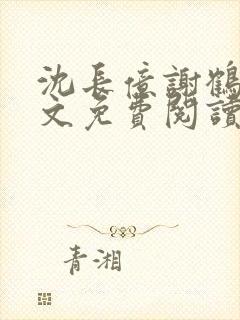 沈長億謝鶴
文免費閱讀
青湘